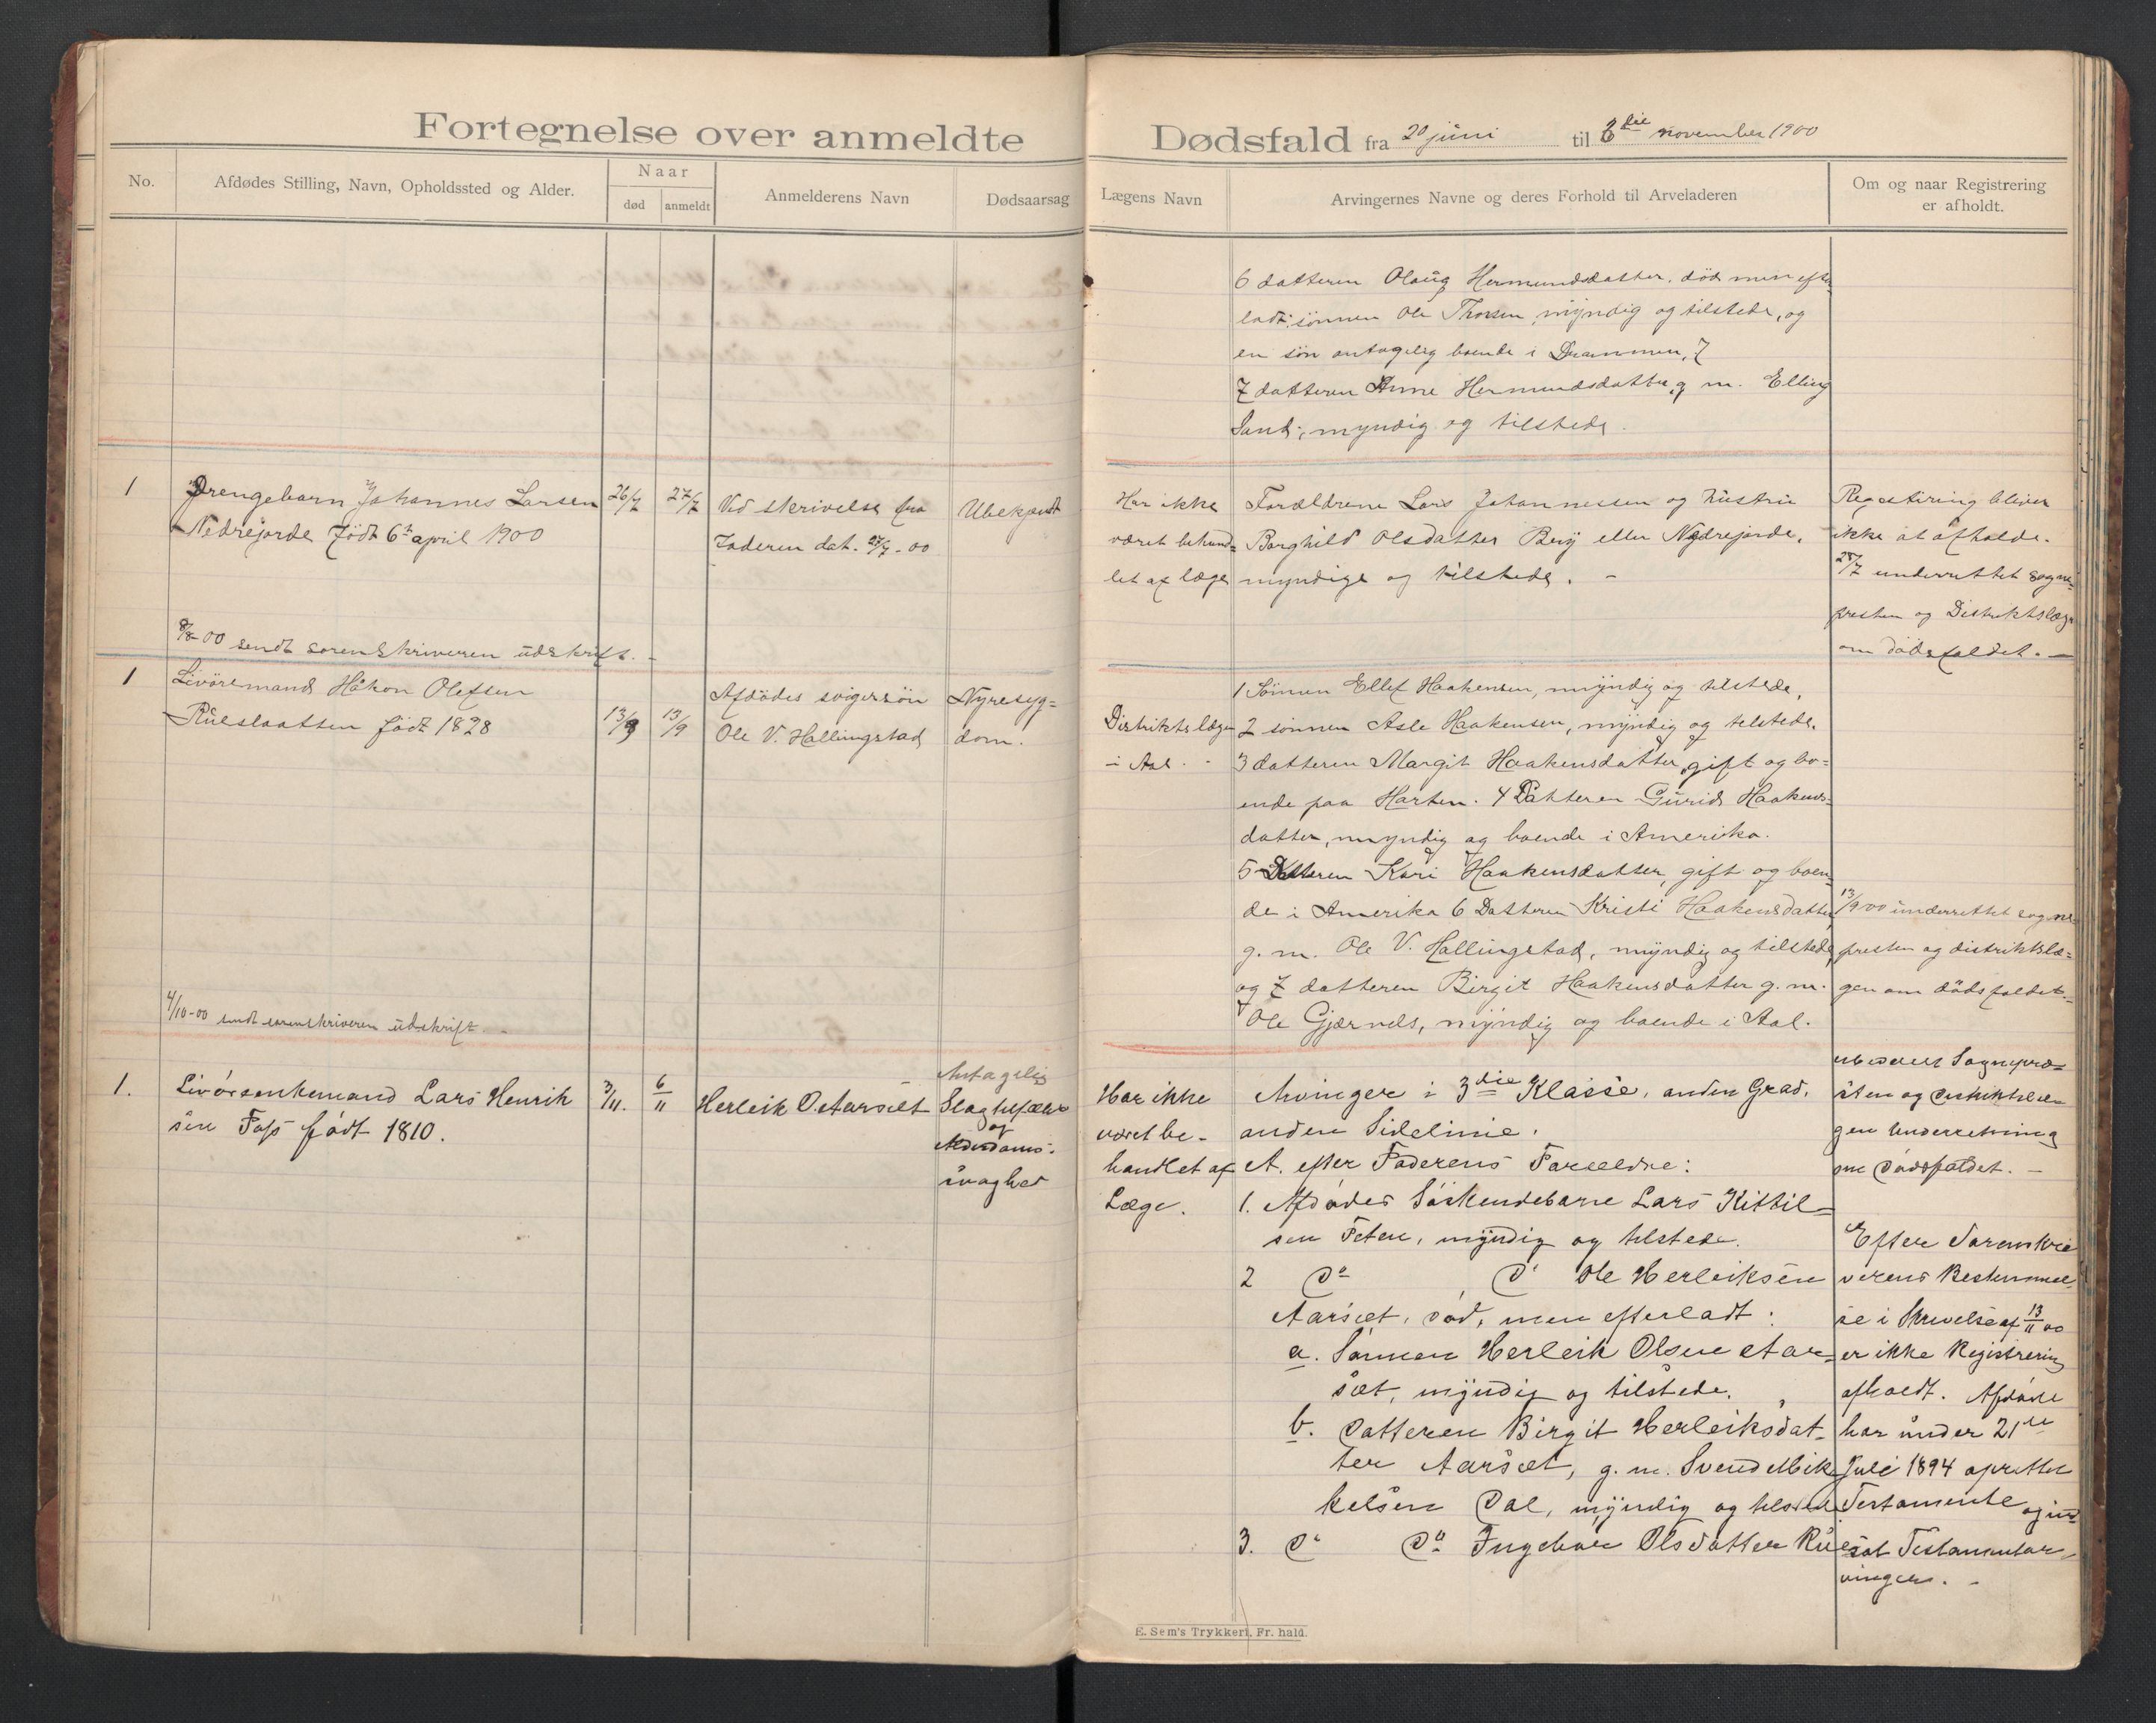 Fortegnelse over anmeldte
Dødsfald fra 20 juni til 6die november 1900
No.
Afdødes Stilling, Navn, Opholdssted og Alder.
Naar
død
anmeldt
Anmelderens Navn
Dødsaarsag
Lægens Navn
Arvingernes Navne og deres Forhold til Arveladeren
Om og naar Registrering
er afholdt.
6 datteren Olaug Hermundsdatter, död men efter-
ladt: sönnen Ole Thorsen, myndig og tilstede, og
en sön antagelig boende i Drammen,
7 datteren Anne Hermundsdatter, g. m. Elling
Sand, myndig og tilstede.
1
Drengebarn Johannes Larsen
Nedrejorde födt 6te april 1900
26/7
27/7
Ved skrivelse fra
Faderen dat. 27/7-00
Ubekjendt
Har ikke
været behand-
let af læge
Forældrene Lars Johannessen og hustru
Borghild Olsdatter Berg eller Nedrejorde,
myndige og tilstede. -
Registrering bliver
ikke at afholde.
28/7 underrettet sogne-
presten og Distriktslægen
om dödsfaldet. -
8/8-00 sendt sorenskriveren udskrift. -
1
Livöremand Håkon Olefsen
Rueslaatten födt 1828
13/9
13/9
Afdödes svigersön
Ole V. Hallingstad
Nyresyg-
dom.
Distriktslægen
i Aal.
1 Sönnen Ellef Haakensen, myndig og tilstede,
2 sönnen Asle Haakensen, myndig og tilstede.
3 datteren Margit Haakensdatter, gift og bo-
ende paa Harten. 4 Datteren Gurid Haakens-
datter, myndig og boende i Amerika.
5 Datteren Kari Haakensdatter, gift og boen-
de i Amerika 6 Datteren Kristi Haakensdatter,
g. m. Ole V. Hallingstad, myndig og tilstede,
og 7 datteren Birgit Haakensdatter g. m.
Ole Gjærnds, myndig og boende i Aal.
13/9 00 underrettet sogne-
presten og distriktslæ-
gen om dödsfaldet. -
4/10-00 sendt sorenskriveren udskrift. -
1.
Livörsenkemand Lars Henrik
sen Foss födt 1810.
3/11.
6/11
Herleik O. Aarset
Antagelig
Slagtilfælde
og
Alderdoms-
svaghed
Har ikke
været be-
handlet af
Læge.
Arvinger i 3die Klasse, anden Grad,
anden Sidelinie.
A. efter Faderens Forældre:
1. Afdødes Söskendebarn Lars Kittil-
sen Feten, myndig og tilstede.
2 Do Do Ole Herleiksen
Aarset, död, men efterladt:
a. Sönnen Herleik Olsen Aar-
set, myndig og tilstede.
b. Datteren Birgit Herleiksdat-
ter Aarset, g. m. Svend Mik
kelsen Dal, myndig og tilstede
3. Do Do Ingebor Olsdatter Rue
Sognepræ-
sten og Distriktslæ-
gen Underretning
om Dödsfaldet. -
Efter Sorenskri
verens Bestemmel
se i Skrivelse af 13/11 00
er ikke Registrering
afholdt. Afdöde
har under 21de
Juli 1894 oprettet
Testamente og ind
sat Testamentar-
vinger. -
E. Sem's Trykkeri, Fr. hald.